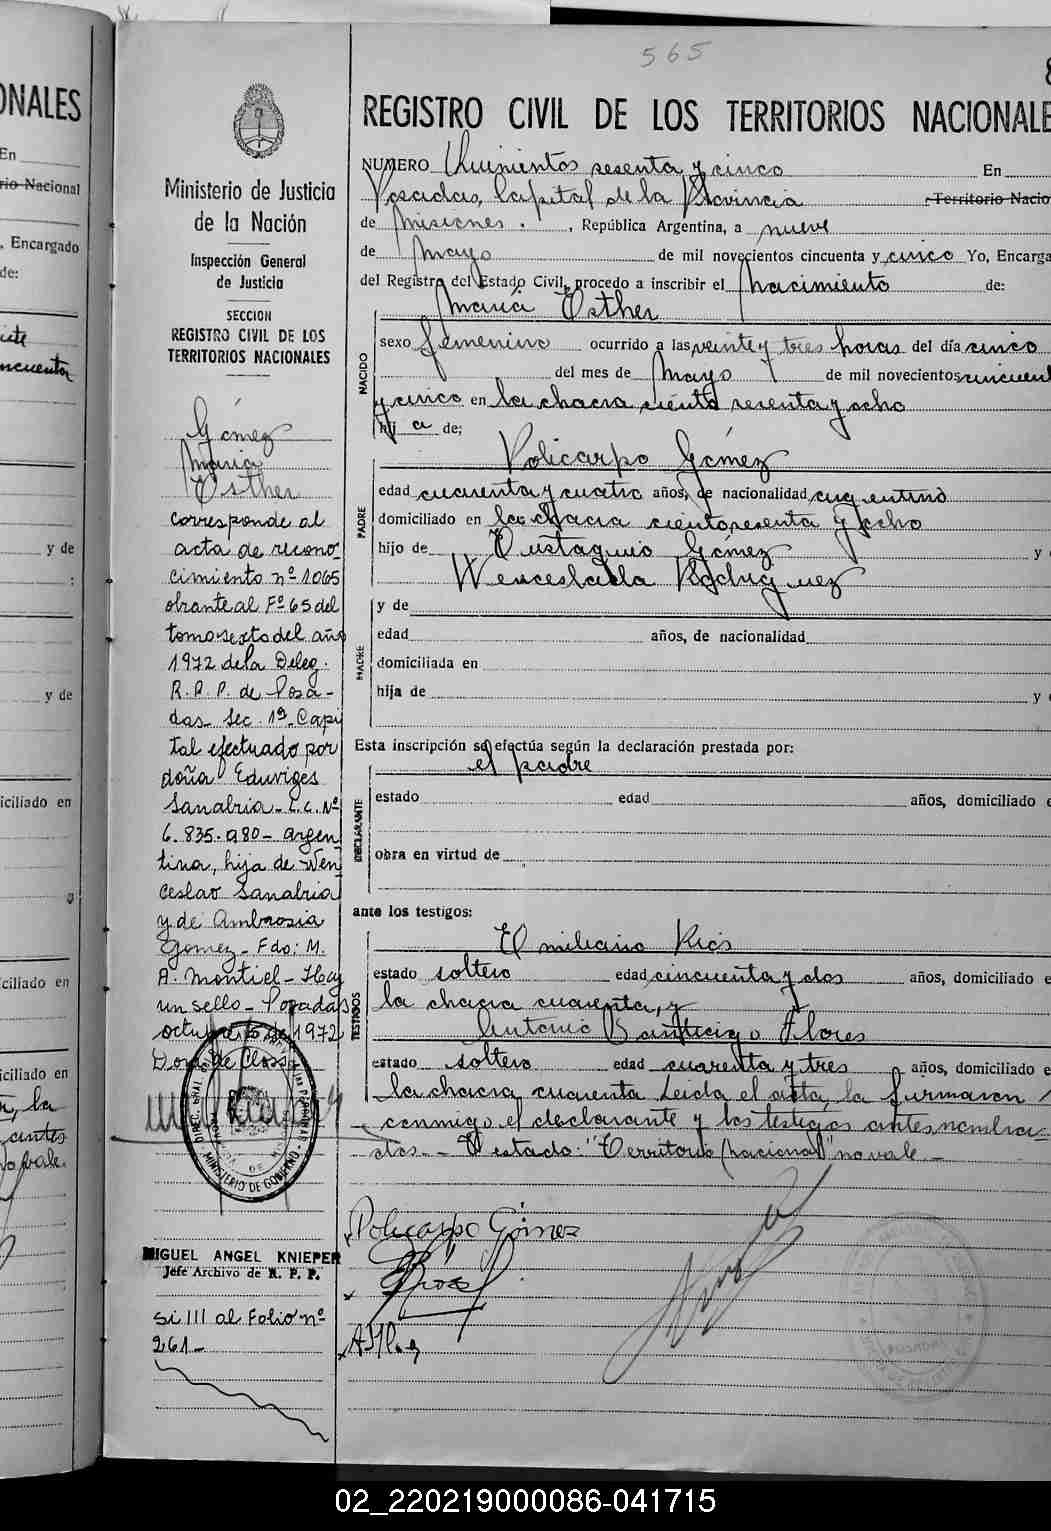 565
8
ONALES
En
rio Nacional
, Encargado
de:
y de
:
y de
iciliado en
ciliado en
iciliado en
, la
antes
no vale.
Ministerio de Justicia
de la Nación
Inspección General
de Justicia
SECCION
REGISTRO CIVIL DE LOS
TERRITORIOS NACIONALES
Gómez
María
Esther
corresponde al
acta de recono
cimiento nº 1065
obrante al Fº 65 del
tomo sexto del año
1972 de la Deleg.
R. P. P. de Posa-
das Sec. 1ª Capi
tal efectuado por
doña Eduviges
Sanabria - L.C. Nº
6.835.980 - argen
tina, hija de Wen
ceslao Sanabria
y de Ambrosia
Gomez - Fdo: M.
A. Montiel - Hay
un sello - Posadas
octubre de 1972
MINISTERIO DE GOBIERNO
MIGUEL ANGEL KNIEPER
Jefe Archivo de R. P. P.
si III al Folio nº
261 -
REGISTRO CIVIL DE LOS TERRITORIOS NACIONALE
NUMERO Quinientos sesenta y cinco En
Posadas, Capital de la Provincia Territorio Nacio
de Misiones. , República Argentina, a nueve
de Mayo de mil novecientos cincuenta y cinco Yo, Encarga
del Registro del Estado Civil, procedo a inscribir el Nacimiento de:
María Esther
NACIDO
sexo femenino ocurrido a las veinte y tres horas del día cinco
del mes de Mayo de mil novecientos cincuent
y cinco en la chacra ciento sesenta y ocho
hij a de:
Policarpo Gómez
PADRE
edad cuarenta y cuatro años, de nacionalidad argentino
domiciliado en la chacra ciento sesenta y ocho
hijo de Eustaquio Gómez y
Wenceslada Rodriguez
MADRE
y de
edad años, de nacionalidad
domiciliada en
hija de y
Esta inscripción se efectúa según la declaración prestada por:
el padre
DECLARANTE
estado edad años, domiciliado e
obra en virtud de
ante los testigos:
Emiliano Rios
TESTIGOS
estado soltero edad cincuenta y dos años, domiciliado e
la chacra cuarenta, y
Antonio Flores
estado soltero edad cuarenta y tres años, domiciliado e
la chacra cuarenta Leida el acta, la firmaron
conmigo el declarante y los testigos antes nombra=
dos. - Testado: "Territorio Nacional" no vale. -
Policarpo Gómez
02_220219000086-041715